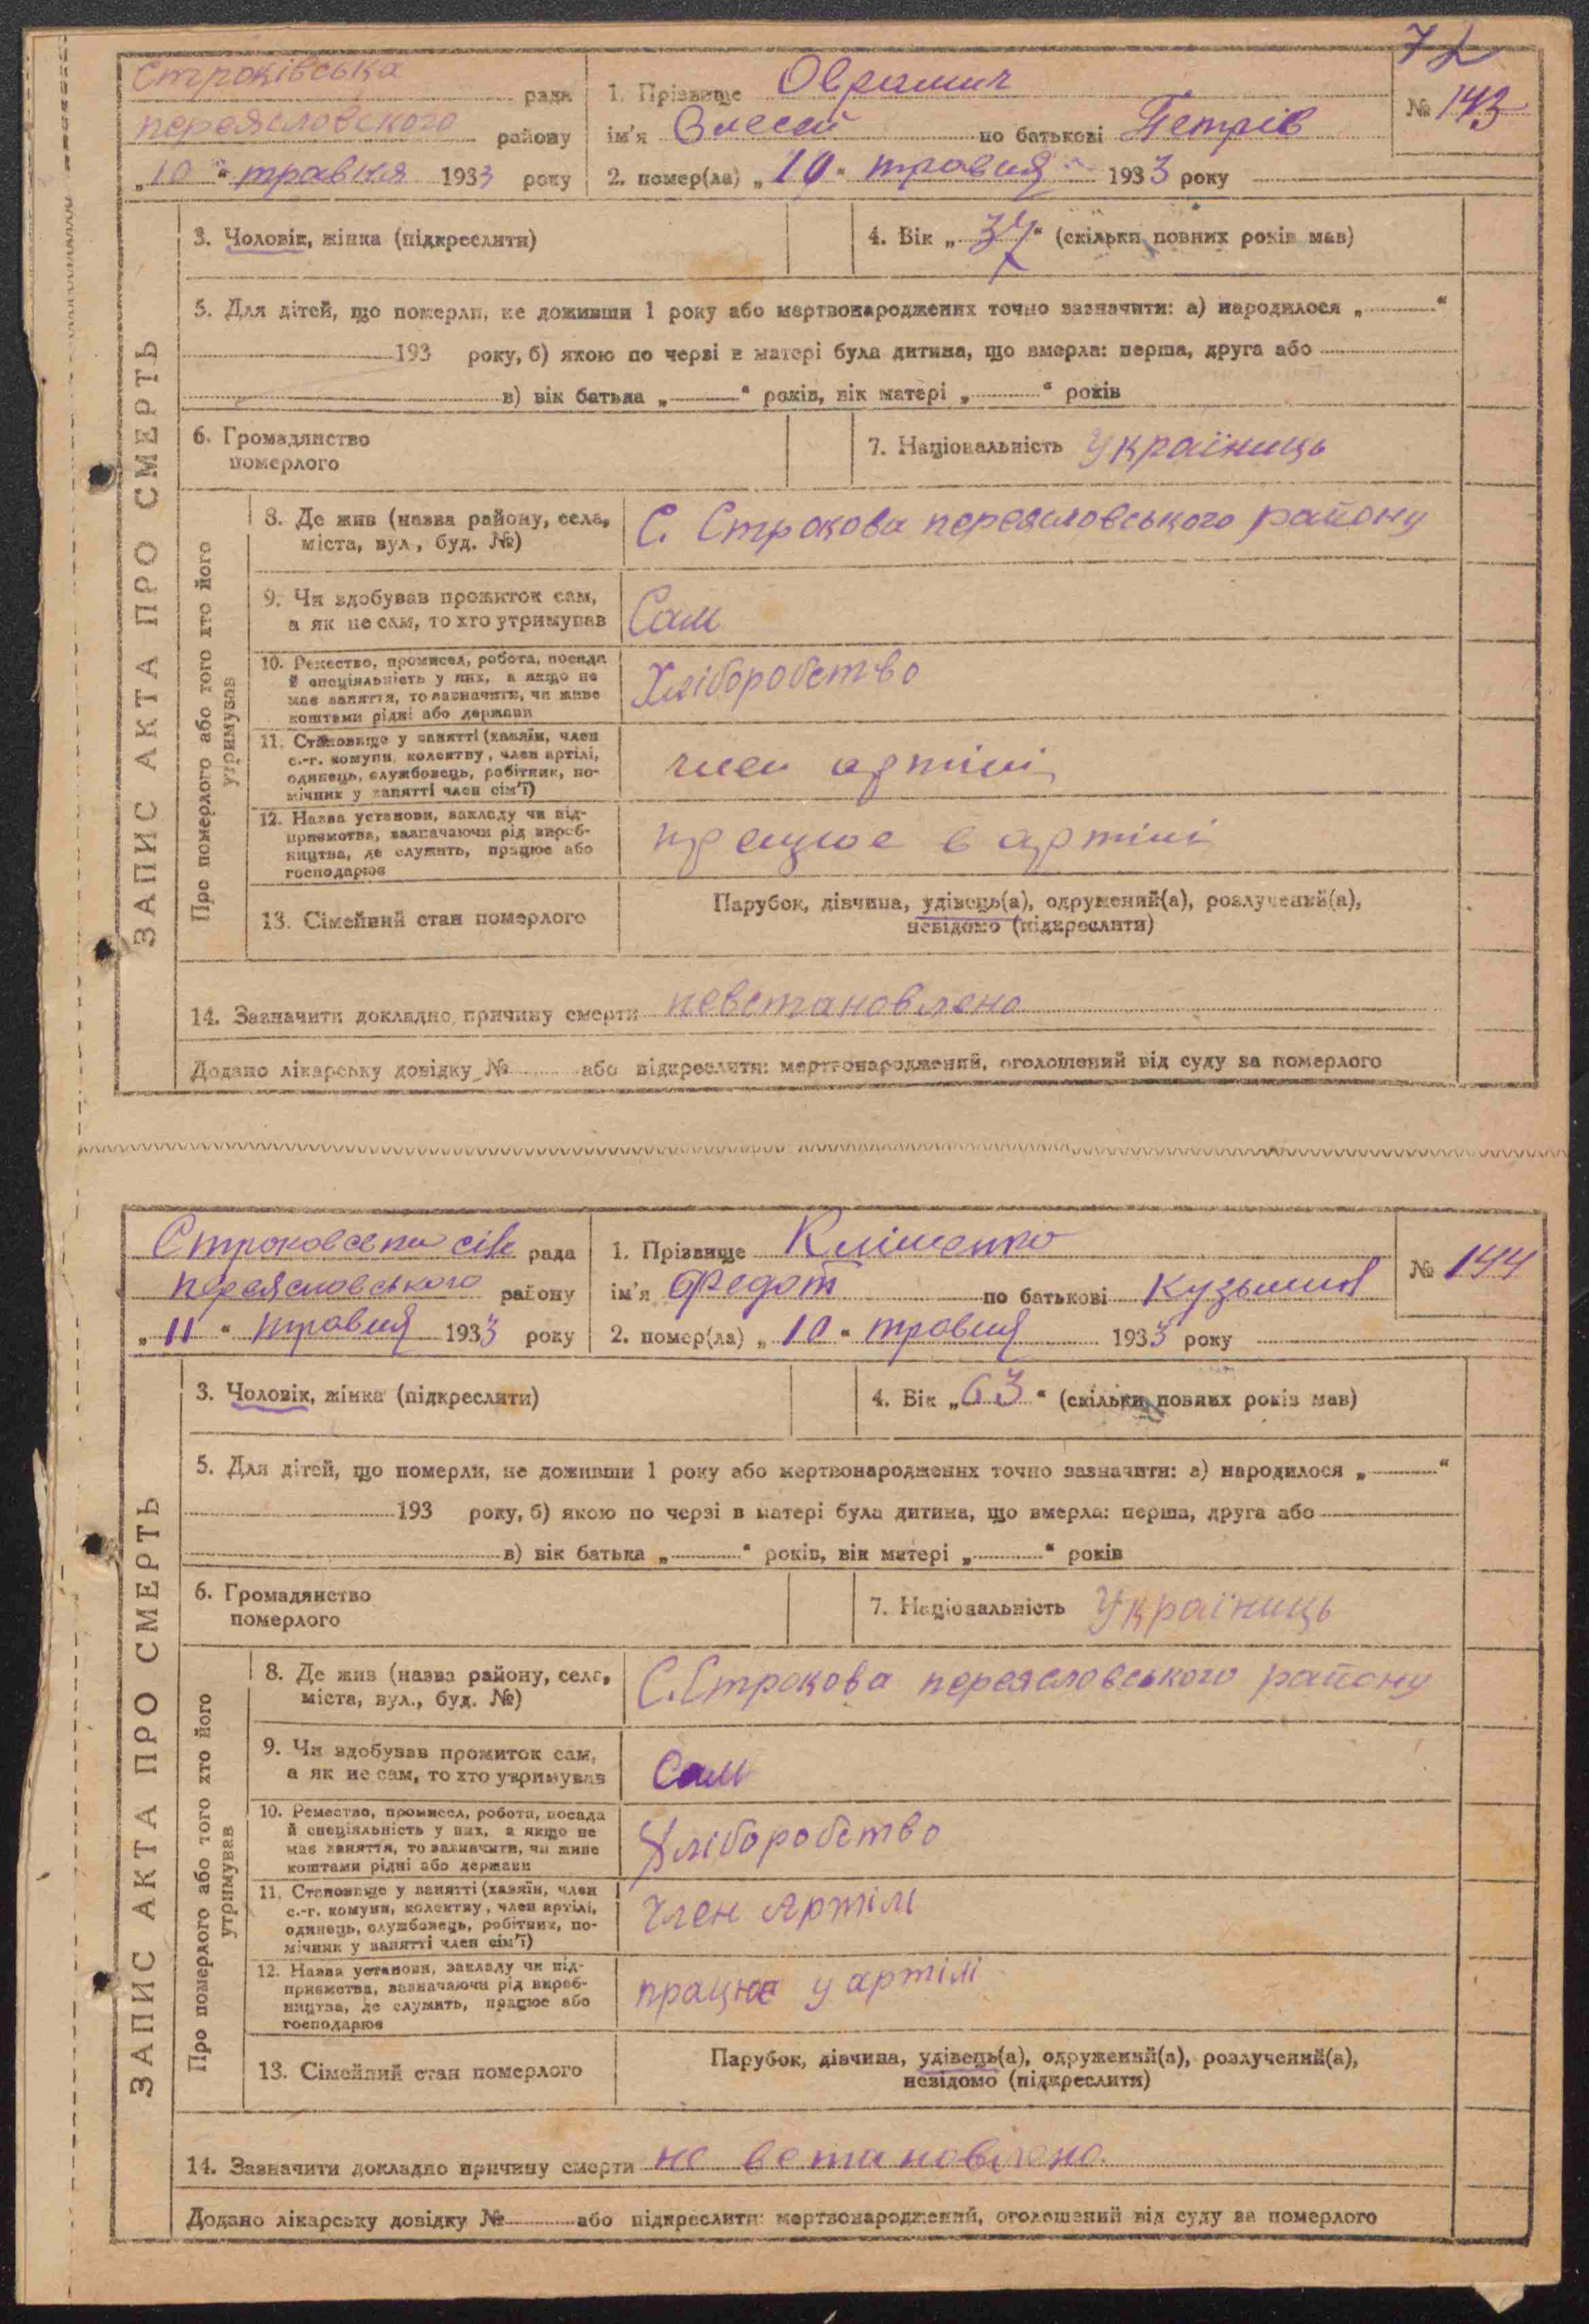 72
Строківська рада
переясловского району
„10“ травня 1933 року
1. Прізвище Оврамич
ім'я Олесей по батькові Петрів
2. помер(ла) „10“ травня 1933 року
№ 143
ЗАПИС АКТА ПРО СМЕРТЬ
3. Чоловік, жінка (підкреслити)
4. Вік „37“ (скільки повних років мав)
5. Для дітей, що померли, не доживши 1 року або мертвонароджених точно зазначити: а) народилося „ “
193 року, б) якою по черзі в матері була дитина, що вмерла: перша, друга або
в) вік батька „ “ років, вік матері „ “ років
6. Громадянство
померлого
7. Національність Україниць
Про померлого або того хто його
утримував
8. Де жив (назва району, села,
міста, вул., буд. №)
С. Строкова переясловського району
9. Чи здобував прожиток сам,
а як не сам, то хто утримував
Сам
10. Ремество, промисел, робота, посада
й спеціяльність у них, а якщо не
має заняття, то зазначити, чи живе
коштами рідні або держави
Хліборобство
11. Становище у занятті (хазяїн, член
с.-г. комуни, колективу, член артілі,
одинець, службовець, робітник, по-
мічник у занятті член сім'ї)
член артілі
12. Назва установи, закладу чи під-
приємства, зазначаючи рід вироб-
ництва, де служить, працює або
господарює
працює в артілі
13. Сімейний стан померлого
Парубок, дівчина, удівець(а), одружений(а), розлучений(а),
невідомо (підкреслити)
14. Зазначити докладно причину смерти невстановлено
Додано лікарську довідку № або підкреслити: мертвонароджений, оголошений від суду за померлого
Строковська сіл рада
переясловського району
„11“ травня 1933 року
1. Прізвище Кліменко
ім'я Федот по батькові Кузьмит
2. помер(ла) „10“ травня 1933 року
№ 144
ЗАПИС АКТА ПРО СМЕРТЬ
3. Чоловік, жінка (підкреслити)
4. Вік „63“ (скільки повних років мав)
5. Для дітей, що померли, не доживши 1 року або мертвонароджених точно зазначити: а) народилося „ “
193 року, б) якою по черзі в матері була дитина, що вмерла: перша, друга або
в) вік батька „ “ років, вік матері „ “ років
6. Громадянство
померлого
7. Національність Україниць
Про померлого або того хто його
утримував
8. Де жив (назва району, села,
міста, вул., буд. №)
С. Строкова переясловського району
9. Чи здобував прожиток сам,
а як не сам, то хто утримував
Сам
10. Ремество, промисел, робота, посада
й спеціяльність у них, а якщо не
має заняття, то зазначити, чи живе
коштами рідні або держави
Хліборобство
11. Становище у занятті (хазяїн, член
с.-г. комуни, колективу, член артілі,
одинець, службовець, робітник, по-
мічник у занятті член сім'ї)
Член Артілі
12. Назва установи, закладу чи під-
приємства, зазначаючи рід вироб-
ництва, де служить, працює або
господарює
працює у артілі
13. Сімейний стан померлого
Парубок, дівчина, удівець(а), одружений(а), розлучений(а),
невідомо (підкреслити)
14. Зазначити докладно причину смерти не встановлено
Додано лікарську довідку № або підкреслити: мертвонароджений, оголошений від суду за померлого